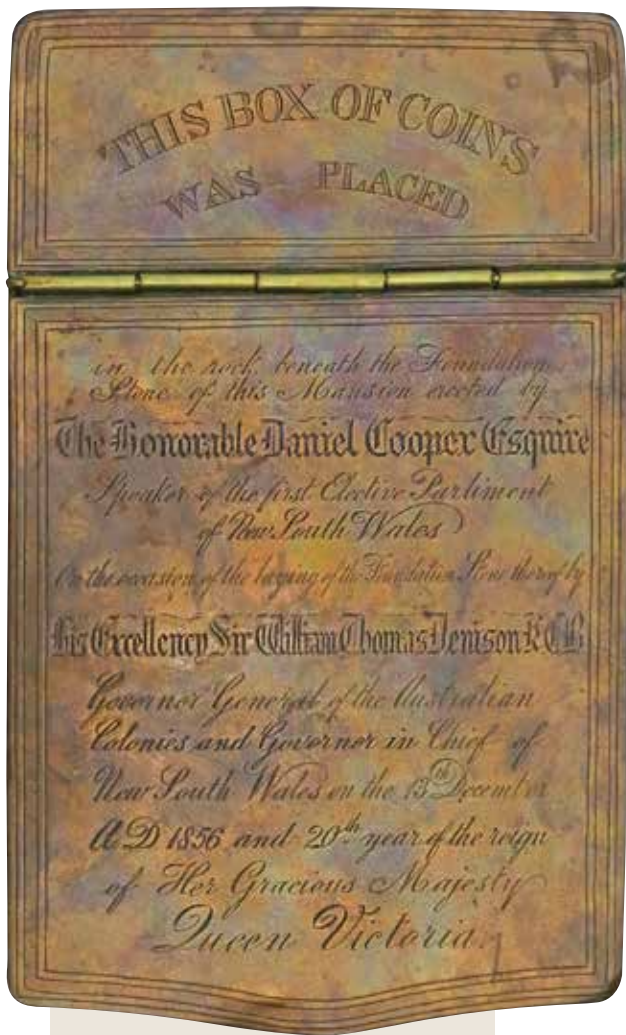 THIS BOX OF COINS
WAS PLACED
in the rock, beneath the Foundation
Stone of this Mansion erected by
The Honorable Daniel Cooper Esquire
Speaker of the first Elective Parliment
of New South Wales
On the occasion of the laying of the Foundation Stone thereof by
His Excellency Sir William Thomas Denison K C B
Governor General of the Australian
Colonies and Governor in Chief of
New South Wales on the 13th December
A D 1856 and 20th year of the reign
of Her Gracious Majesty
Queen Victoria